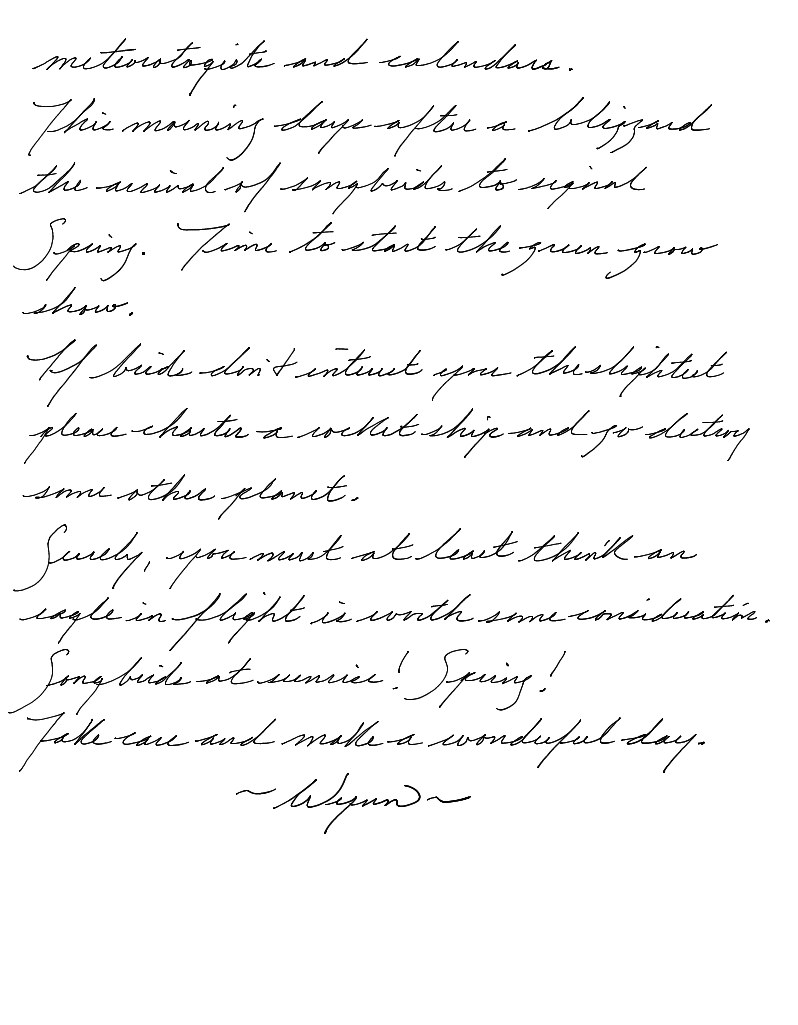 meteorologists and calendars.
This morning days after a blizzard
the arrival of songbirds to signal
Spring. Time to start the green grow
show.
If birds don't interest you the slightest
please charter a rocket ship and go destroy
some other planet.
Surely, you must at least think an
eagle in flight is worth some consideration.
Songbirds at sunrise! Spring!
Take care and make a wonderful day.
~Wynn~